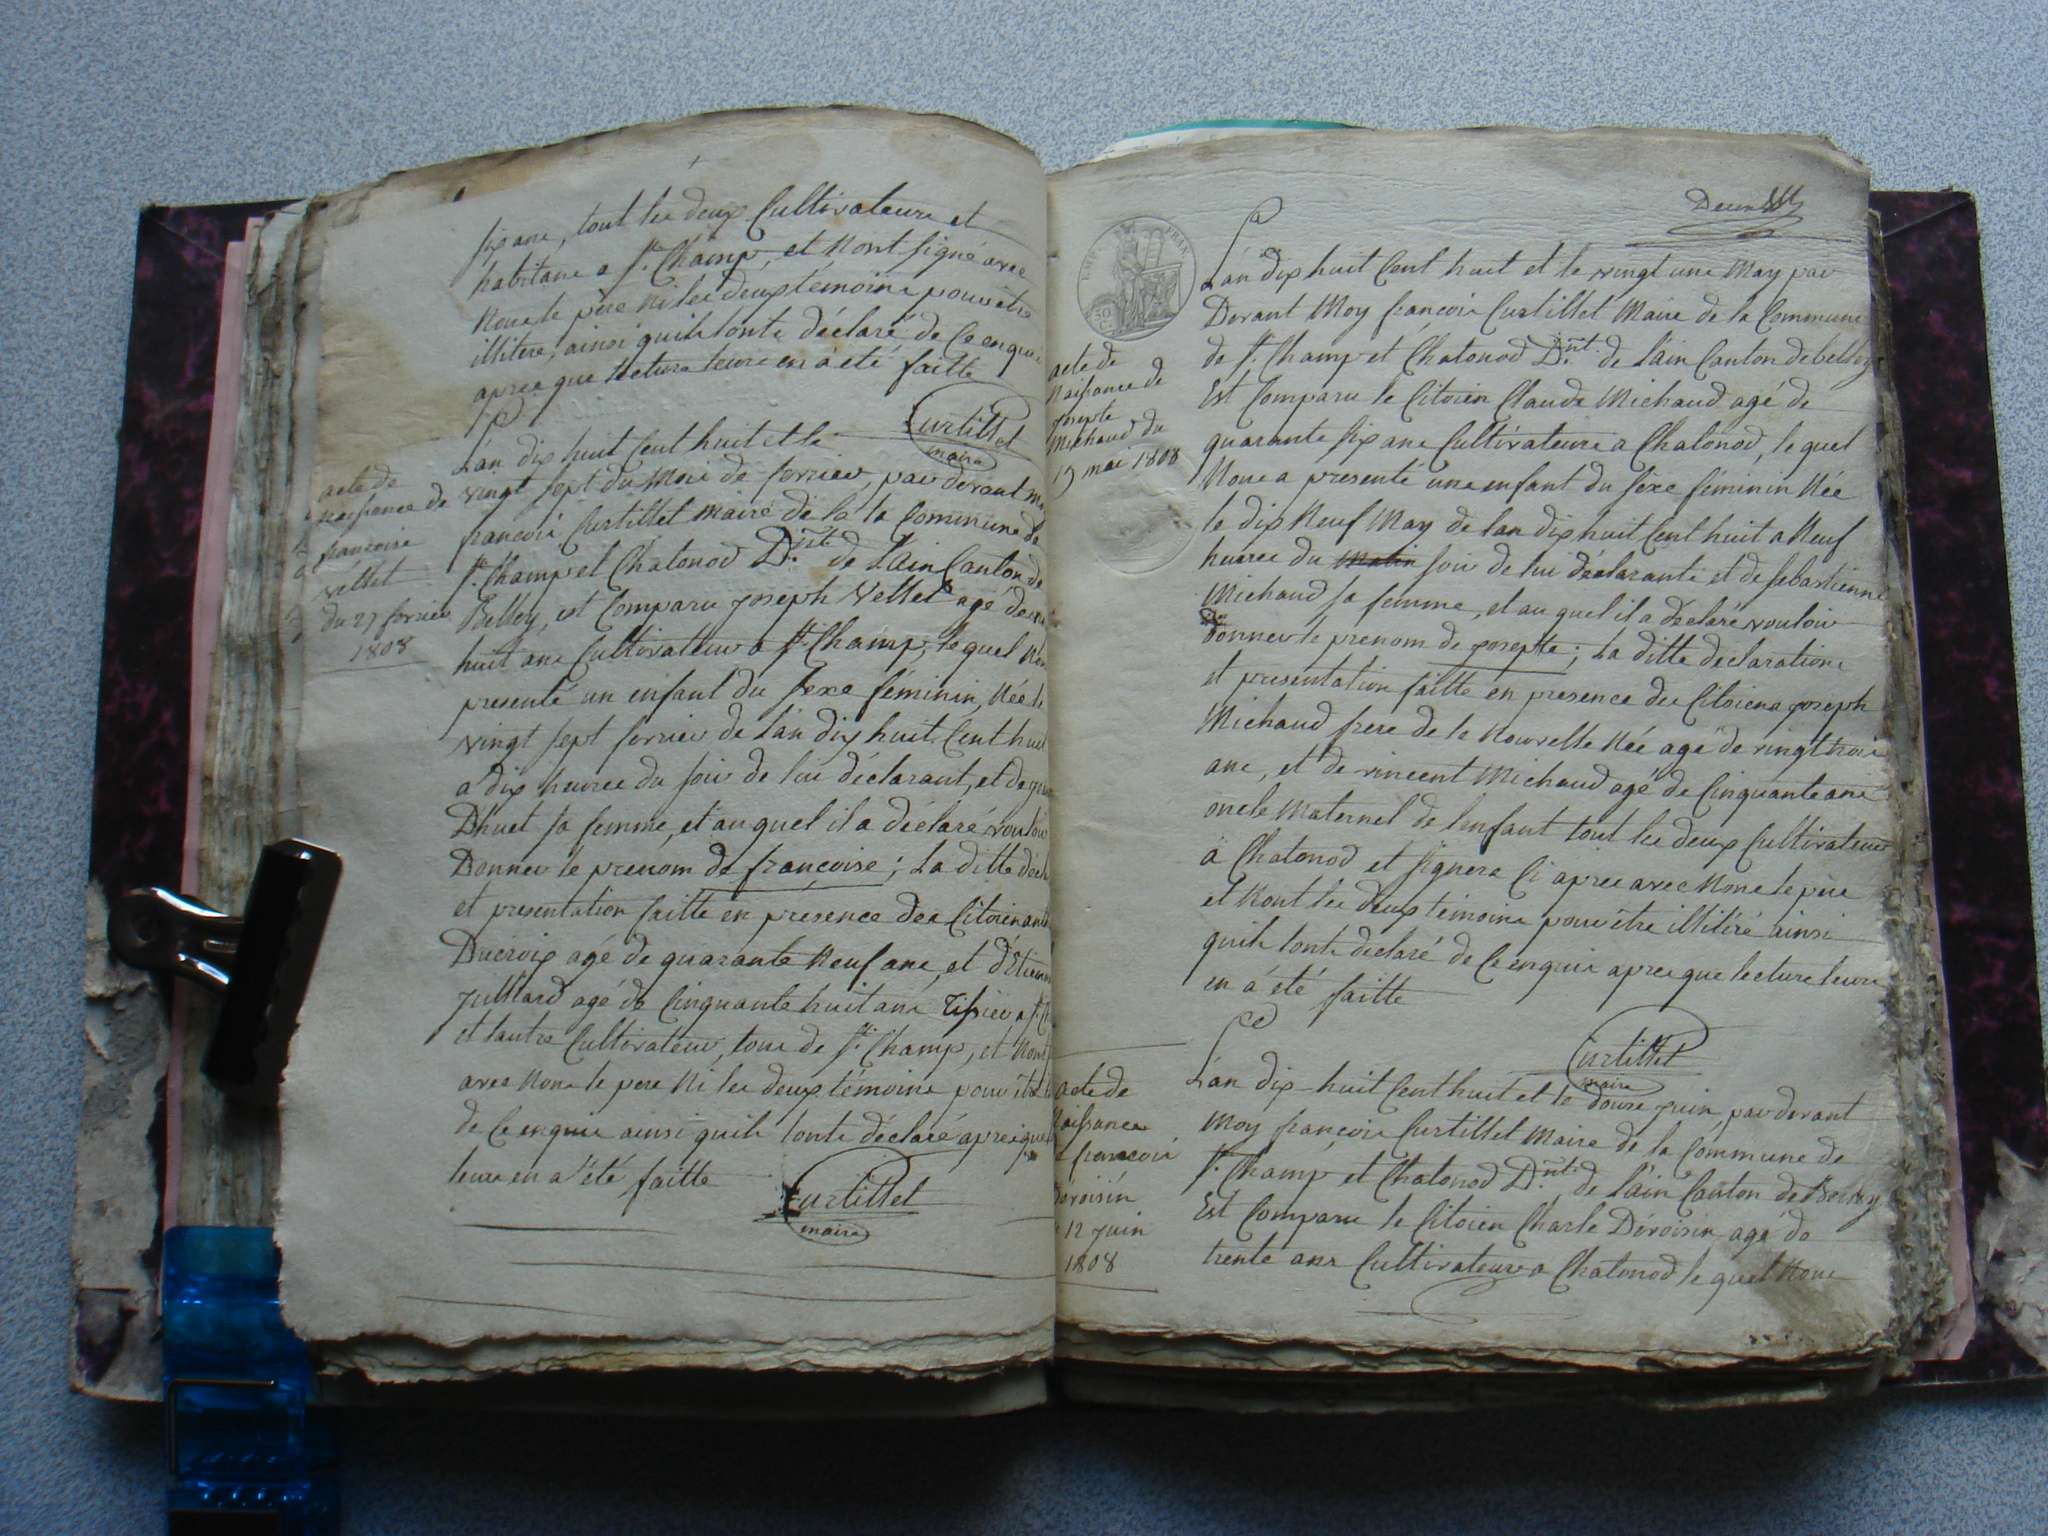 six ans, tout les deux Cultivateurs et
habitans a St. Champ, et nont signé avec
Nous le père ni les deux témoins pour etre
illitere, ainsi quils lonts déclaré de Ce enquis
apres que lecture leurs en a été faitte
Curtillet
maire
acte de
Naissance de
francoise
vettet
du 27 fevrier
1808
Lán dix huit Cent huit et le
vingt sept du Mois de fevrier, par devant moy
francois Curtillet maire de la la Commune de
St. Champ et Chatonod D.nt de Lain Canton de
Belley, est Comparu joseph Vettet agé de
huit ans Cultivateur a St. Champ, le quel Nous
presenté un enfant du sexe féminin, Née le
vingt sept fevrier de lán dix huit Cent huit
a dix heures du soir de lui déclarant, et de
Dhuet sa femme, et au quel il a déclaré vouloir
Donner le prenom de francoise ; La ditte
et presentation faitte en présence des Citoien
Ducroix agé de quarante Neuf ans, et d'Etienne
Julliard agé de Cinquante huit ans Tissier a St.
et lautre Cultivateur, tous de St. Champ, et Nont
avec Nous le pere Ni les deux témoins pour être
de Ce enquis ainsi quils lonts déclaré apres que
leurs en a été faitte
Curtillet
maire
acte de
Naissance de
josepte
Michaud du
19 mai 1808
Lán dix huit Cent huit et le vingt une May par
Devant Moy francois Curtillet Maire de la Commune
de St. Champ et Chatonod D.nt de Lain Canton de belley
Est Comparu le Citoien Claude Michaud agé de
quarante six ans Cultivateurs a Chatonod, le quel
Nous a presenté une enfant du sexe féminin Née
le dix Neuf May de lan dix huit Cent huit a Neuf
heures du matin soir de lui déclarants et de sebastienne
Michaud sa femme, et au quel il a déclaré vouloir
donner le prenom de josepte ; La ditte declarations
et presentation faitte en presence des Citoiens joseph
Michaud frere de la Nouvelle Née agé de vingt trois
ans, et de vincent Michaud agé de Cinquante ans
oncle Maternel de lenfant tout les deux Cultivateurs
à Chatonod et signera Ci apres avec Nous le père
et Nont les deux témoins pour être illitéré ainsi
quils lonts declaré de Ce enquis apres que lecture leurs
en á été faitte
Curtillet
maire
acte de
Naissance
francois
Déroisin
12 juin
1808
Lán dix huit Cent huit et le douse juin par devant
Moy francois Curtillet Maire de la Commune de
St. Champ et Chatonod D.nt de Lain Canton de Belley
Est Comparu le Citoien Charle Déroisin, agé de
trente ans Cultivateurs a Chatonod le quel Nous